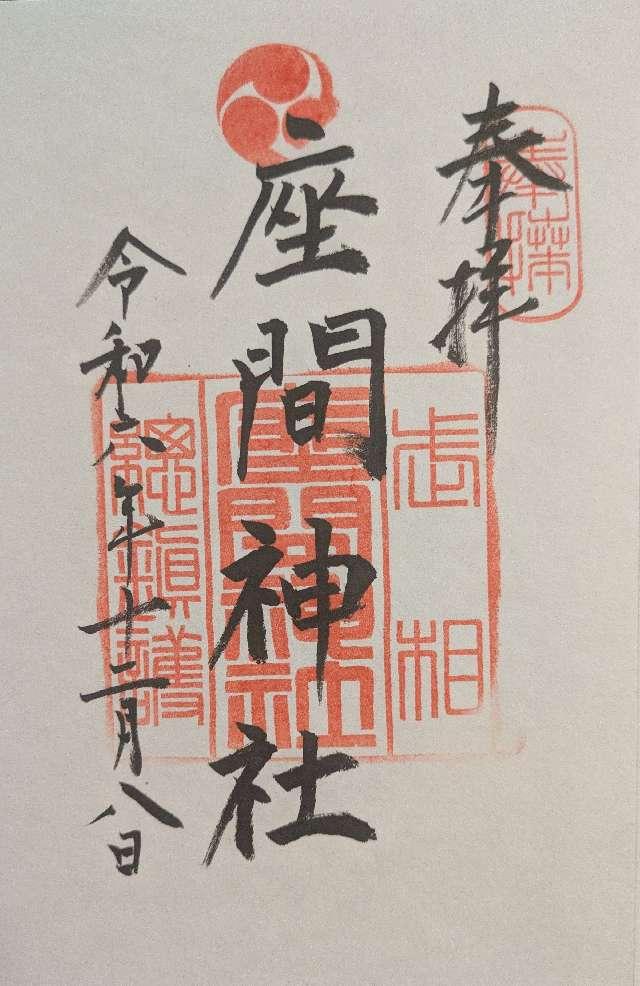 奉拝
奉拝
座間神社
武相
座間神社
總鎮護
令和六年十二月八日